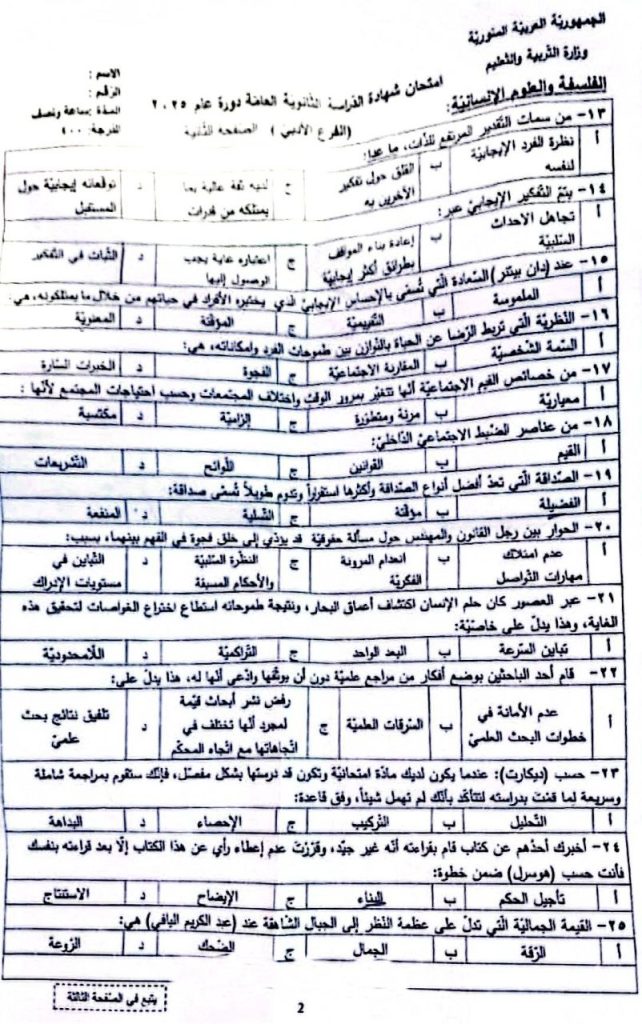 الجمهوريّة العربيّة السّوريّة
وزارة التّربية والتّعليم
الفلسفة والعلوم الإنسانيّة:
امتحان شهادة الدّراسة الثّانويّة العامّة دورة عام ٢٠٢٥
(الفرع الأدبيّ) الصفحة الثّانية
الاسم :
الرّقم :
المدّة: ساعة ونصف
الدّرجة: ٢٠٠
١٣- من سمات التّقدير المرتفع للذّات، ما عدا:
أ نظرة الفرد الإيجابيّة لنفسه ب القلق حول تفكير الآخرين به ج لديه ثقة عالية بما يمتلكه من قدرات د توقّعاته إيجابيّة حول المستقبل
١٤- يتمّ التّفكير الإيجابيّ عبر:
أ تجاهل الأحداث السّلبيّة ب إعادة بناء المواقف بطرائق أكثر إيجابيّة ج اعتباره غاية يجب الوصول إليها د الثّبات في التّفكير
١٥- عند (دان بيتنر) السّعادة الّتي تُسمّى بالإحساس الإيجابيّ الذي يختبره الأفراد في حياتهم من خلال ما يمتلكونه، هي:
أ الملموسة ب التّقييميّة ج المؤقّتة د المعنويّة
١٦- النّظريّة الّتي تربط الرّضا عن الحياة بالتّوازن بين طموحات الفرد وإمكاناته، هي:
أ السّمة الشّخصيّة ب المقارنة الاجتماعيّة ج الفجوة د الخبرات السّارة
١٧- من خصائص القيم الاجتماعيّة أنّها تتغيّر بمرور الوقت واختلاف المجتمعات وحسب احتياجات المجتمع لأنّها :
أ معياريّة ب مرنة ومتطوّرة ج إلزاميّة د مكتسبة
١٨- من عناصر الضّبط الاجتماعيّ الدّاخليّ:
أ القيم ب القوانين ج اللّوائح د التّشريعات
١٩- الصّداقة الّتي تعدّ أفضل أنواع الصّداقة وأكثرها استقراراً وتدوم طويلاً تُسمّى صداقة:
أ الفضيلة ب مؤقّتة ج التّسلية د المنفعة
٢٠- الحوار بين رجل القانون والمهندس حول مسألة حقوقيّة قد يؤدّي إلى خلق فجوة في الفهم بينهما، بسبب:
أ عدم امتلاك مهارات التّواصل ب انعدام المرونة الفكريّة ج النّظرة السّلبيّة والأحكام المسبقة د التّباين في مستويات الإدراك
٢١- عبر العصور كان حلم الإنسان اكتشاف أعماق البحار، ونتيجة طموحاته استطاع اختراع الغواصات لتحقيق هذه
الغاية، وهذا يدلّ على خاصيّة:
أ تباين السّرعة ب البعد الواحد ج التّراكميّة د اللّامحدوديّة
٢٢- قام أحد الباحثين بوضع أفكار من مراجع علميّة دون أن يوثّقها وادّعى أنّها له، هذا يدلّ على:
أ عدم الأمانة في خطوات البحث العلميّ ب السّرقات العلميّة ج رفض نشر أبحاث قيّمة لمجرد أنّها تختلف في اتّجاهاتها مع اتّجاه المحكّم د تلفيق نتائج بحث علميّ
٢٣- حسب (ديكارت): عندما يكون لديك مادّة امتحانيّة وتكون قد درستها بشكل مفصّل، فإنّك ستقوم بمراجعة شاملة
وسريعة لما قمتَ بدراسته لتتأكّد بأنّك لم تهمل شيئاً، وفق قاعدة:
أ التّحليل ب التّركيب ج الإحصاء د البداهة
٢٤- أخبرك أحدهم عن كتاب قام بقراءته أنّه غير جيّد، وقرّرتَ عدم إعطاء رأي عن هذا الكتاب إلّا بعد قراءته بنفسك
فأنت حسب (هوسرل) ضمن خطوة:
أ تأجيل الحكم ب البناء ج الإيضاح د الاستنتاج
٢٥- القيمة الجماليّة الّتي تدلّ على عظمة النّظر إلى الجبال الشّاهقة عند (عبد الكريم اليافي) هي:
أ الرّقّة ب الجمال ج الضّحك د الرّوعة
يتبع في الصّفحة الثّالثة
2